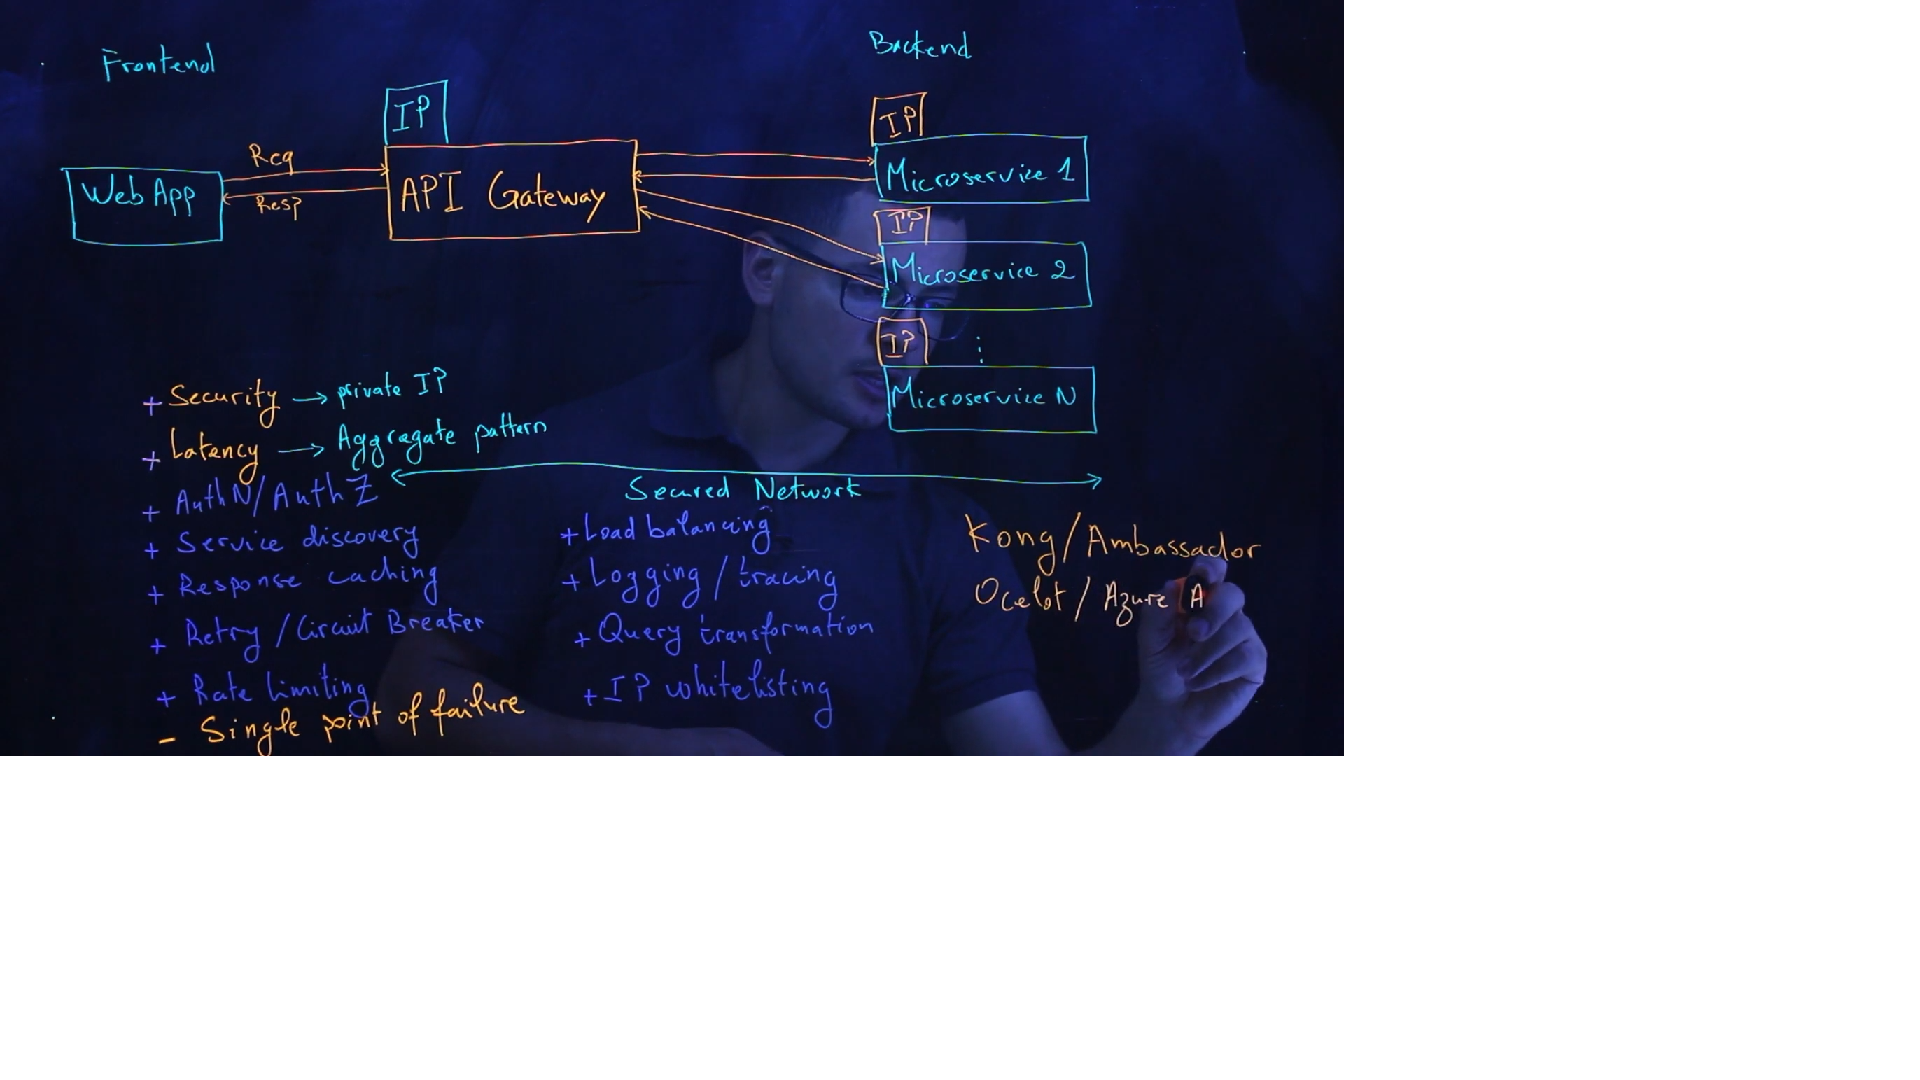 Frontend
Backend
IP
IP
Req
Web App
Resp
API Gateway
Microservice 1
IP
Microservice 2
IP
Microservice N
+ Security → private IP
+ Latency → Aggregate pattern
+ AuthN/AuthZ
Secured Network
+ Service discovery
+ Response caching
+ Retry/Circuit Breaker
+ Rate limiting
- Single point of failure
+ Load balancing
+ Logging / tracing
+ Query transformation
+ IP whitelisting
Kong/Ambassador
Ocelot/ Azure A